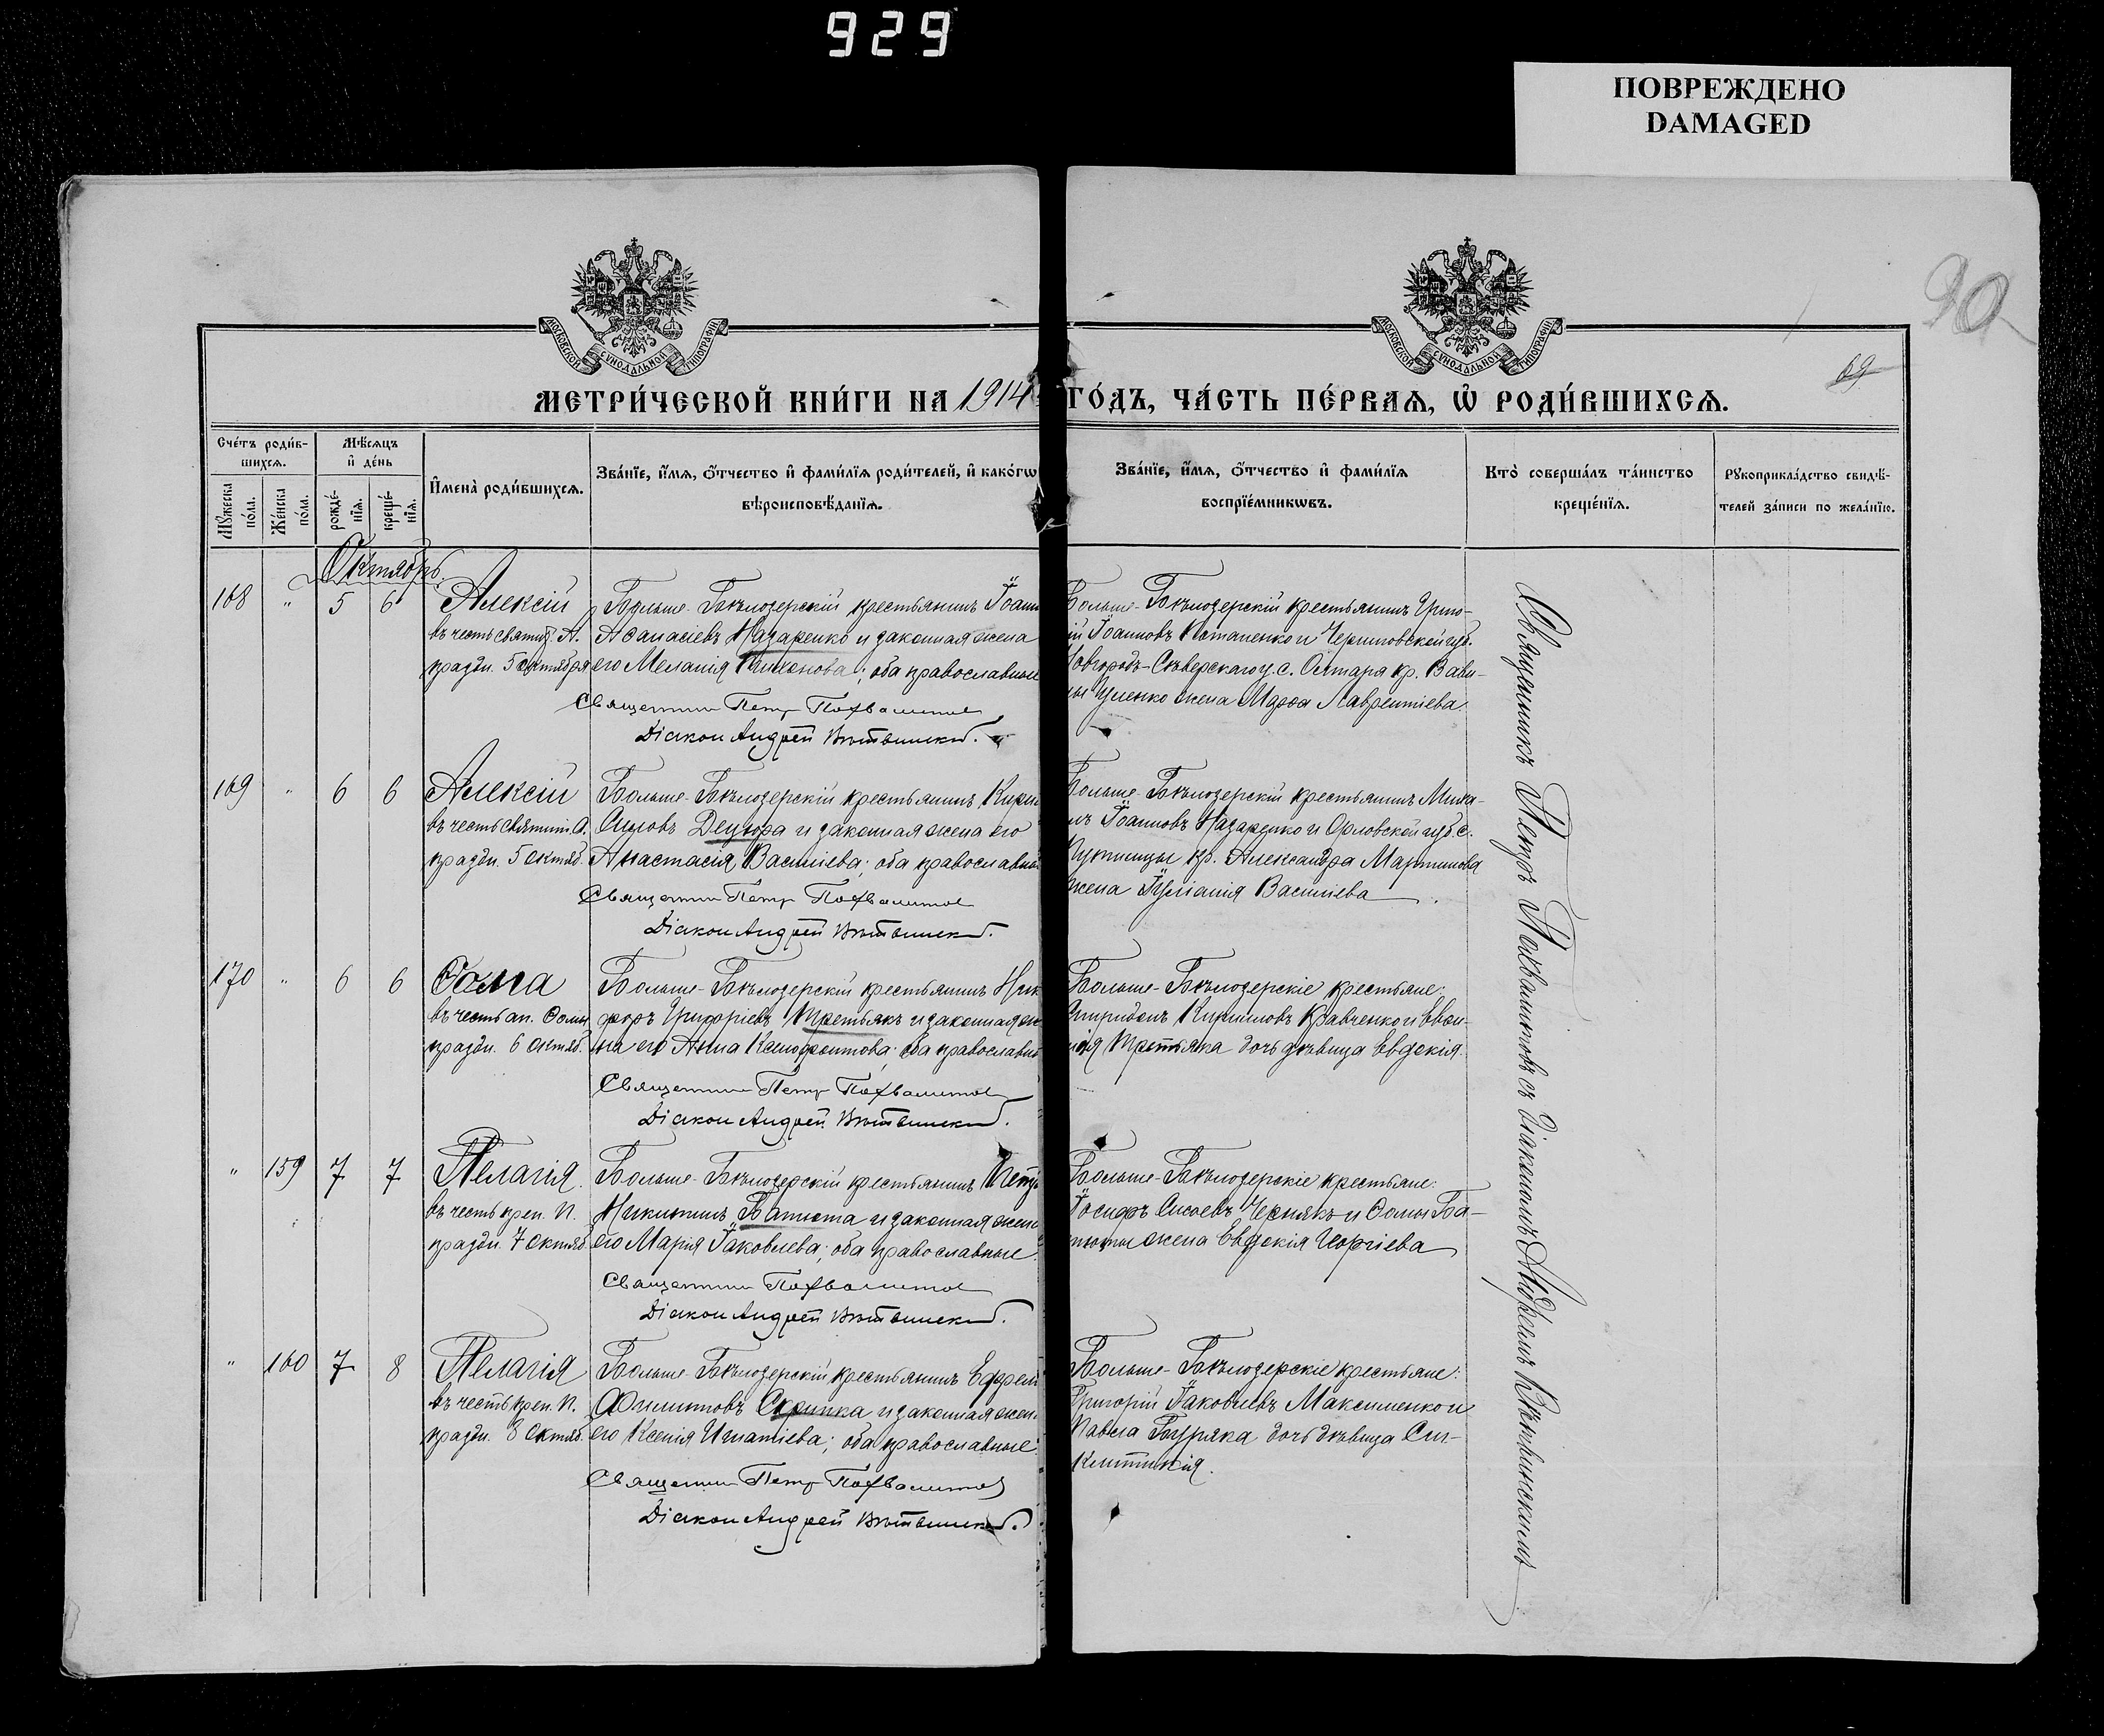 929
ПОВРЕЖДЕНО
DAMAGED
90
69
МОСКОВСКОЙ СѴНОДАЛЬНОЙ ТИПОГРАФІИ
МОСКОВСКОЙ СѴНОДАЛЬНОЙ ТИПОГРАФІИ
МЕТРИ́ЧЕСКОЙ КНИ́ГИ НА 1914 ГО́ДЪ, ЧА́СТЬ ПЕ́РВАѦ, Ѡ҆ РОДИ́ВШИХСѦ.
Сче́тъ роди́в-
шихсѧ.
Мꙋ́жеска по́ла.
Же́нска по́ла.
Мѣ́сѧцъ
и҆ де́нь
рожде́-нїѧ.
креще́-нїѧ.
И҆мена̀ роди́вшихсѧ.
Зва́нїе, и҆́мѧ, ѻ҆́тчество и҆ фами́лїѧ роди́телей, и҆ како́гѡ
вѣроисповѣ́данїѧ.
Зва́нїе, и҆́мѧ, ѻ҆́тчество и҆ фами́лїѧ
воспрїе́мникѡвъ.
Кто̀ соверша́лъ та́инство
креще́нїѧ.
Рꙋкоприкла́дство свидѣ́-
телей за́писи по жела́нїю.
Октябрь.
168 " 5 6 Алексій
въ честь святит. А.
праздн. 5 октября
Больше-Бѣлозерскій крестьянинъ Іоанн
Аѳанасіевъ Назаренко и законная жена
его Меланія Тихонова; оба православные
Священник Петр Похвалитов
Діакон Андрей Вѣтвинскій.
Больше-Бѣлозерскій крестьянинъ Григо-
ій Іоанновъ Потапенко и Черниговской губ.
Новгородъ-Сѣверскаго у. с. Олтаря кр. Вави-
жена Марѳа Лаврентіева
169 " 6 6 Алексій
въ честь святит. А.
праздн. 5 октяб.
Больше-Бѣлозерскій крестьянинъ Кирил
Децюра и законная жена его
Анастасія Василіева; оба православные
Священник Петр Похвалитов
Діакон Андрей Вѣтвинскій.
Больше-Бѣлозерскій крестьянинъ Миха-
илъ Іоанновъ Назаренко и Орловской губ. с.
кр. Александра Мартинова
жена Іуліанія Василіева
170 " 6 6 Ѳома
въ честь ап. Ѳомы
праздн. 6 октяб.
Больше-Бѣлозерскій крестьянинъ Ник
форъ Григоріевъ Третьякъ и законная же
на его Анна Ксенофонтова; оба православные
Священник Петр Похвалитов
Діакон Андрей Вѣтвинскій.
Больше-Бѣлозерскіе крестьяне:
Спиридонъ Кирилловъ Кравченко и
Третьяка дочь дѣвица Евдокія.
" 159 7 7 Пелагія
въ честь преп. П.
праздн. 7 октяб.
Больше-Бѣлозерскій крестьянинъ Петр
Никитинъ Батюта и законная жена
его Марія Іаковлева; оба православные.
Священник Похвалитов
Діакон Андрей Вѣтвинскій.
Больше-Бѣлозерскіе крестьяне:
Іосифъ Сисоевъ Чернякъ и Ѳомы Ба-
тюты жена Евдокія Георгіева
" 160 7 8 Пелагія
въ честь преп. П.
праздн. 8 октяб.
Больше-Бѣлозерскій крестьянинъ Ефрем
Филипповъ Скрипка и законная жена
его Ксенія Игнатіева; оба православные.
Священник Петр Похвалитов
Діакон Андрей Вѣтвинскій.
Больше-Бѣлозерскіе крестьяне:
Григорій Іаковлевъ Максименко и
Павла Буряка дочь дѣвица Син-
клитикія.
Священникъ Петръ Похвалитовъ съ діакономъ Андреемъ Вѣтвинскимъ